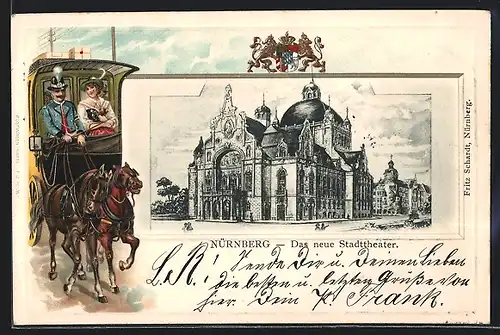 NÜRNBERG — Das neue Stadttheater.
Fritz Schardt, Nürnberg.
L. R! Sende Dir u. Deinen Lieben
die besten u. letzten Grüße von
hier. Dein K. Frank.